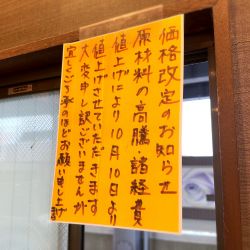 価格改定のお知らせ
原材料の高騰諸経費
値上げにより10月10日より
値上げさせていただきます
大変申し訳ございませんが
宜しくご了承のほどお願い申し上げ
ます